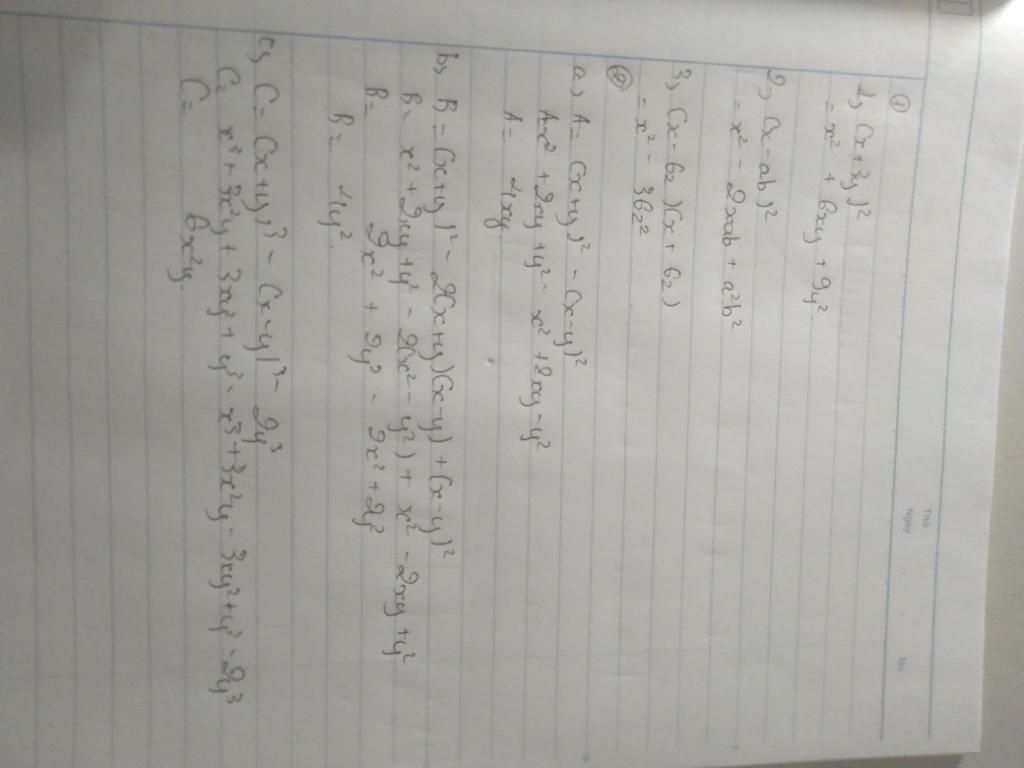 Thứ
Ngày
No.
①
1, (x+3y)²
= x² + 6xy + 9y²
2, (x-ab)²
= x² - 2xab + a²b²
3, (x-6z)(x+6z)
= x² - 36z²
②
a, A = (x+y)² - (x-y)²
A = x² + 2xy + y² - x² + 2xy - y²
A = 4xy
b, B = (x+y)² - 2(x+y)(x-y) + (x-y)²
B = x² + 2xy + y² - 2(x² - y²) + x² - 2xy + y²
B = 2x² + 2y² - 2x² + 2y²
B = 4y².
c, C = (x+y)³ - (x-y)³ - 2y³
C = x³ + 3x²y + 3xy² + y³ - x³ + 3x²y - 3xy² + y³ - 2y³
C = 6x²y